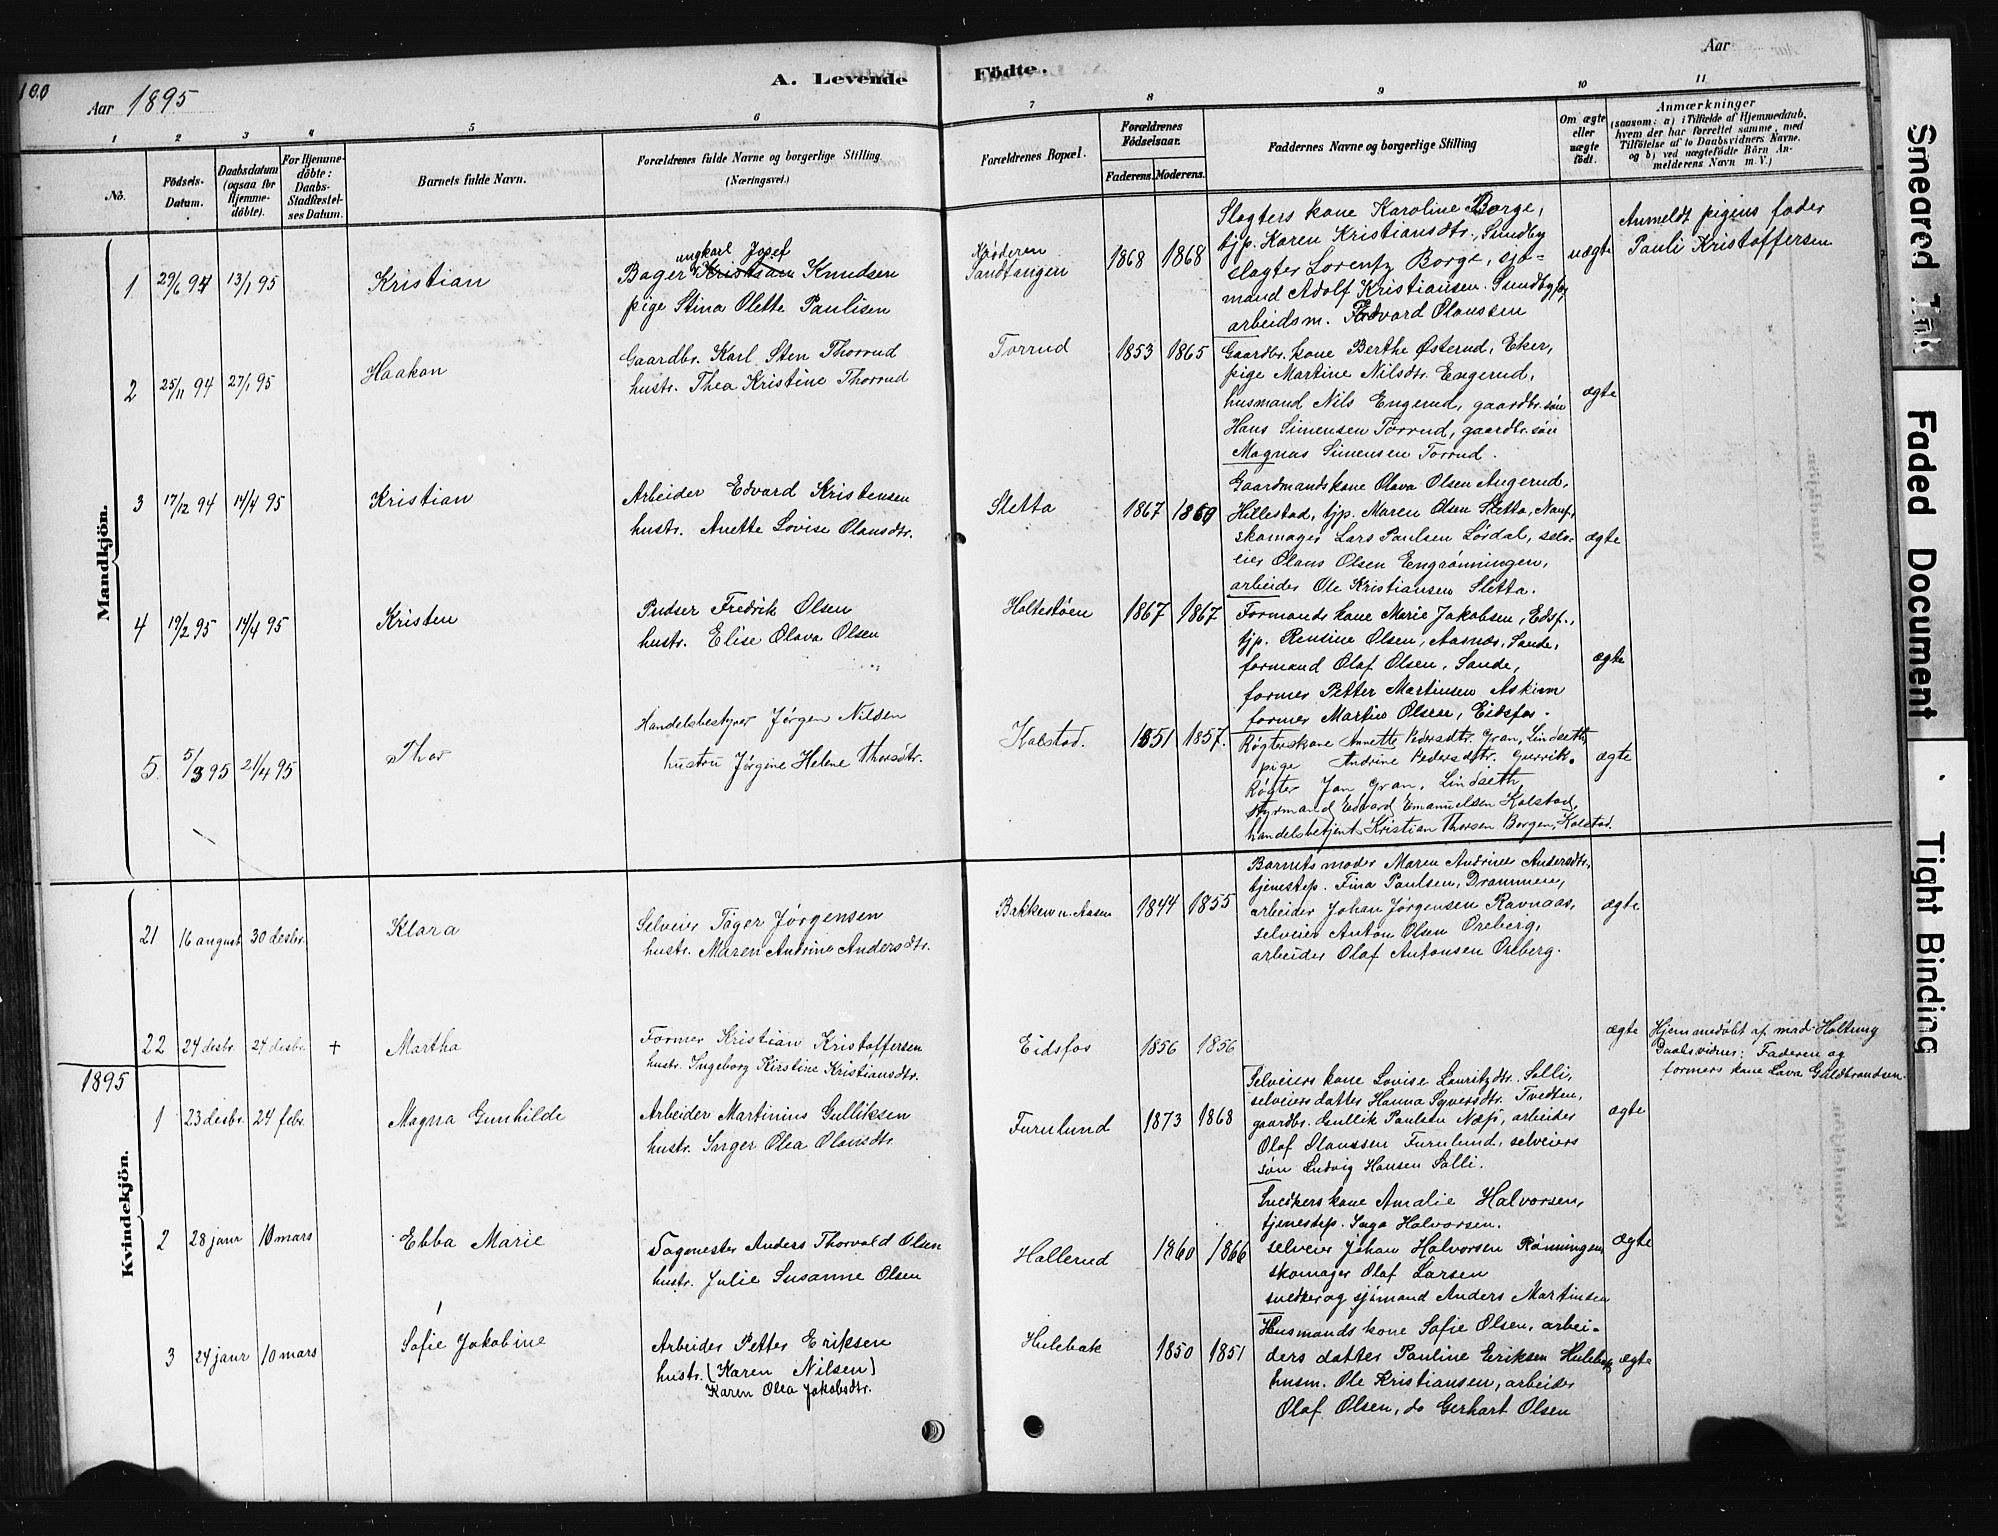 100
Aar 1895
A. Levende
Födte.
Aar
1 2 3 4 5 6 7 8 9 10 11
No.
Födsels-Datum.
Daabsdatum (ogsaa for Hjemme-döbte).
For Hjemme-döbte: Daabs-Stadfæstel-ses Datum.
Barnets fulde Navn.
Forældrenes fulde Navne og borgerlige Stilling (Næringsvei.)
Forældrenes Bopæl.
Forældrenes Födselsaar.
Faderens. Moderens.
Faddernes Navne og borgerlige Stilling
Om ægte eller uægte födt.
Anmærkninger
(saasom: a) i Tilfælde af Hjemmedaab,
hvem der har forrettet samme, med
Tilföielse af to Daabsvidners Navne.
og b) ved uægtefödte Börn An-
melderens Navn m. V.)
Mandkjön.
1 29/6 94 13/1 95 Kristian
ungkarl Josef
Bager Kristian Knudsen
pige Stina Olette Paulisen
Krøderen
Sandtangen
1868 1868
Slagters kone Karoline Borge,
tjp. Karen Kristiansdtr., Sundby
slagter Lorentz Borge, sjø-
mand Adolf Kristiansen. Sundby
arbeidsm. Edvard Olaussen
uægte
Anmeldt pigens fader
Pauli Kristoffersen
2 25/11 94 27/1 95 Haakon
Gaardbr. Karl Sten Thorrud
hustr. Thea Kristine Thorrud
Torrud
1853 1865
Gaardbr. kone Berthe Østerud, Eker,
pige Martine Nilsdtr. Engerud,
husmand Nils Engerud, gaardbr. søn
Hans Simensen Torrud, gaardbr. søn
Magnus Simensen Torrud.
ægte
3 17/12 94 14/4 95 Kristian
Arbeider Edvard Kristensen
hustr. Anette Lovise Olausdtr.
Sletta
1867 1859
Gaardmandskone Olava Olsen Angerud,
Hillestad, tjp. Maren Olsen Sletta,
skomager Lars Paulsen Lørdal, selv-
eier Olaus Olsen Engrønningen,
arbeider Ole Kristiansen Sletta.
ægte
4 19/2 95 14/4 95 Kristen
Pudser Fredrik Olsen
hustr. Elise Olava Olsen
Holtestøen
1867 1867
Formands kone Marie Jakobsen, Edsf.,
tjp. Rensine Olsen, Aasnæs, Sande,
formand Olaf Olsen, Sande,
former Petter Martinsen Askim
former Martin Olsen, Eidsfos.
ægte
5. 5/3 95 21/4 95 Thor
Handelsbestyrer Jørgen Nilsen
hustru Jørgine Helene Thorsdtr.
Kolstad.
1851 1857.
Røgterskone Annette Pedersdtr. Gran, Lindseth,
pige Andrine Pedersdtr.
Røgter Jan Gran, Lindseth,
styrmand Edvard Emanuelsen Kolstad,
handelsbetjent Kristian Thorsen Borgen, Kolstad.
ægte
Kvindekjön.
21 16 august 30 desbr. Klara
Selveier Jøger Jørgensen
hustr. Maren Andrine Andersdtr.
Bakken u. Aasen
1844 1855
Barnets moder Maren Andrine Andersdtr,
tjenestep. Fina Paulsen, Drammen,
arbeider Johan Jørgensen Ravnaas,
selveier Anton Olsen Oreberg,
arbeider Olaf Antonsen Oreberg.
ægte
22 24 desbr. 24 desbr. + Martha
Former Kristian Kristoffersen
hustr. Ingeborg Kirstine Kristiansdtr.
Eidsfos
1856 1856
ægte
Hjemmedøbt af mad. Holtung
Daabsvidner: Faderen og
formers kone Lava Guldbrandsen.
1895
1 23 desbr. 24 febr. Magna Gunhilde
Arbeider Martinius Gulliksen
hustr. Inger Olea Olausdtr.
Furulund
1873 1868
Selveiers kone Lovise Lauritzdtr. Solli,
selveiers datter Hanna Syversdtr. Tvedten,
gaardbr. Gullik Paulsen Næss, arbeider
Olaf Olaussen Furulund, selveiers
søn Ludvig Hansen Solli.
ægte
2 28 janr 10 mars Ebba Marie
Sagmester Anders Thorvald Olsen
hustr. Julie Susanne Olsen
Hallerud
1860 1866
Snedkers kone Amalie Halvorsen,
tjenestep. Inga Halvorsen.
selveier Johan Halvorsen Rønningen,
skomager Olaf Larsen
snedker og sjømand Anders Martinsen
ægte
3 24 janr 10 mars Sofie Jakobine
Arbeider Petter Eriksen
hustr. (Karen Nilsen)
Karen Olea Jakobsdtr.
Hulebak
1850 1851
Husmands kone Sofie Olsen, arbei-
ders datter Pauline Eriksen Hulebak,
husm. Ole Kristiansen, arbeider
Olaf Olsen, do Gerhart Olsen
ægte
Smeared Ink
Faded Document
Tight Binding